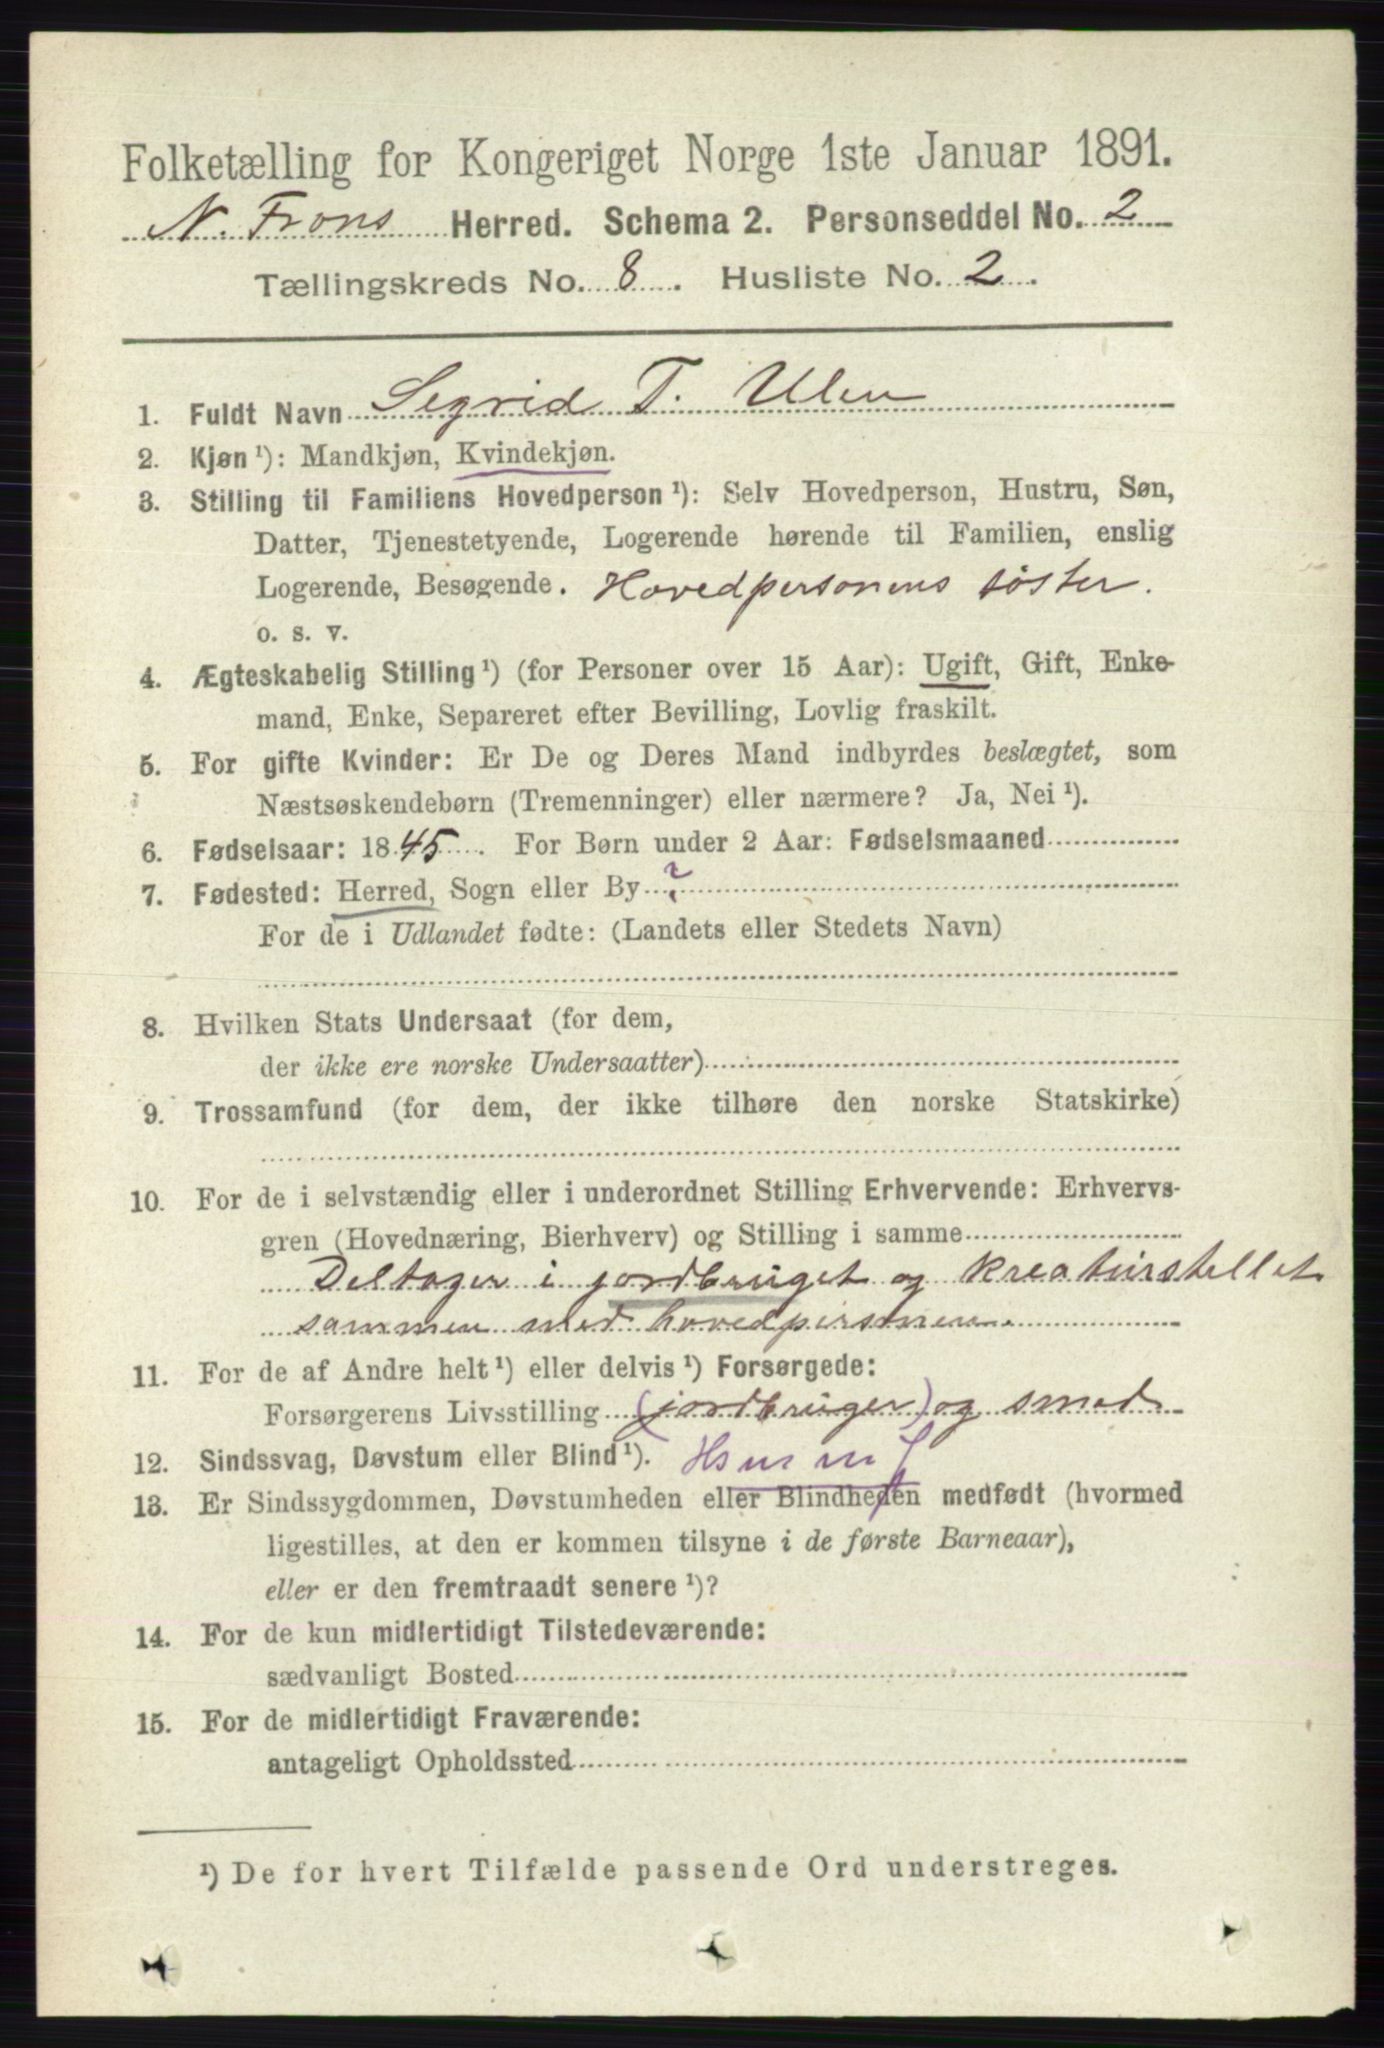 Folketælling for Kongeriget Norge 1ste Januar 1891.
N. Frons Herred. Schema 2. Personseddel No. 2
Tællingskreds No. 8. Husliste No. 2.
1. Fuldt Navn Segrid T. Ulen
2. Kjøn ¹): Mandkjøn, Kvindekjøn.
3. Stilling til Familiens Hovedperson ¹): Selv Hovedperson, Hustru, Søn,
Datter, Tjenestetyende, Logerende hørende til Familien, enslig
Logerende, Besøgende. Hovedpersonens søster.
o. s. v.
4. Ægteskabelig Stilling ¹) (for Personer over 15 Aar): Ugift, Gift, Enke-
mand, Enke, Separeret efter Bevilling, Lovlig fraskilt.
5. For gifte Kvinder: Er De og Deres Mand indbyrdes beslægtet, som
Næstsøskendebørn (Tremenninger) eller nærmere? Ja, Nei ¹).
6. Fødselsaar: 1845. For Børn under 2 Aar: Fødselsmaaned
7. Fødested: Herred, Sogn eller By ?
For de i Udlandet fødte: (Landets eller Stedets Navn)
8. Hvilken Stats Undersaat (for dem,
der ikke ere norske Undersaatter)
9. Trossamfund (for dem, der ikke tilhøre den norske Statskirke)
10. For de i selvstændig eller i underordnet Stilling Erhvervende: Erhvervs-
gren (Hovednæring, Bierhverv) og Stilling i samme
Deltager i jordbruget og kreaturstellet
sammen med hovedpersonen.
11. For de af Andre helt ¹) eller delvis ¹) Forsørgede:
Forsørgerens Livsstilling (jordbruger) og smed
12. Sindssvag, Døvstum eller Blind ¹).
13. Er Sindssygdommen, Døvstumheden eller Blindheden medfødt (hvormed
ligestilles, at den er kommen tilsyne i de første Barneaar),
eller er den fremtraadt senere ¹)?
14. For de kun midlertidigt Tilstedeværende:
sædvanligt Bosted
15. For de midlertidigt Fraværende:
antageligt Opholdssted
¹) De for hvert Tilfælde passende Ord understreges.